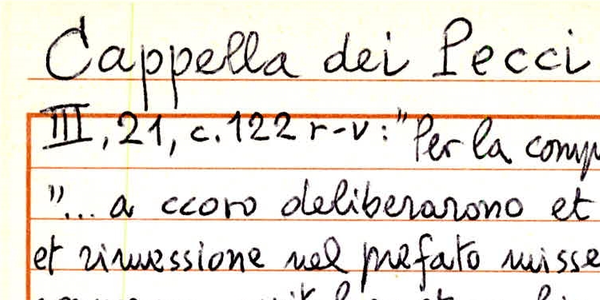 Cappella dei Pecci
III, 21, c. 122 r-v: "Per la comp
"... a ccoro deliberarono et
et rimessione nel prefato misse